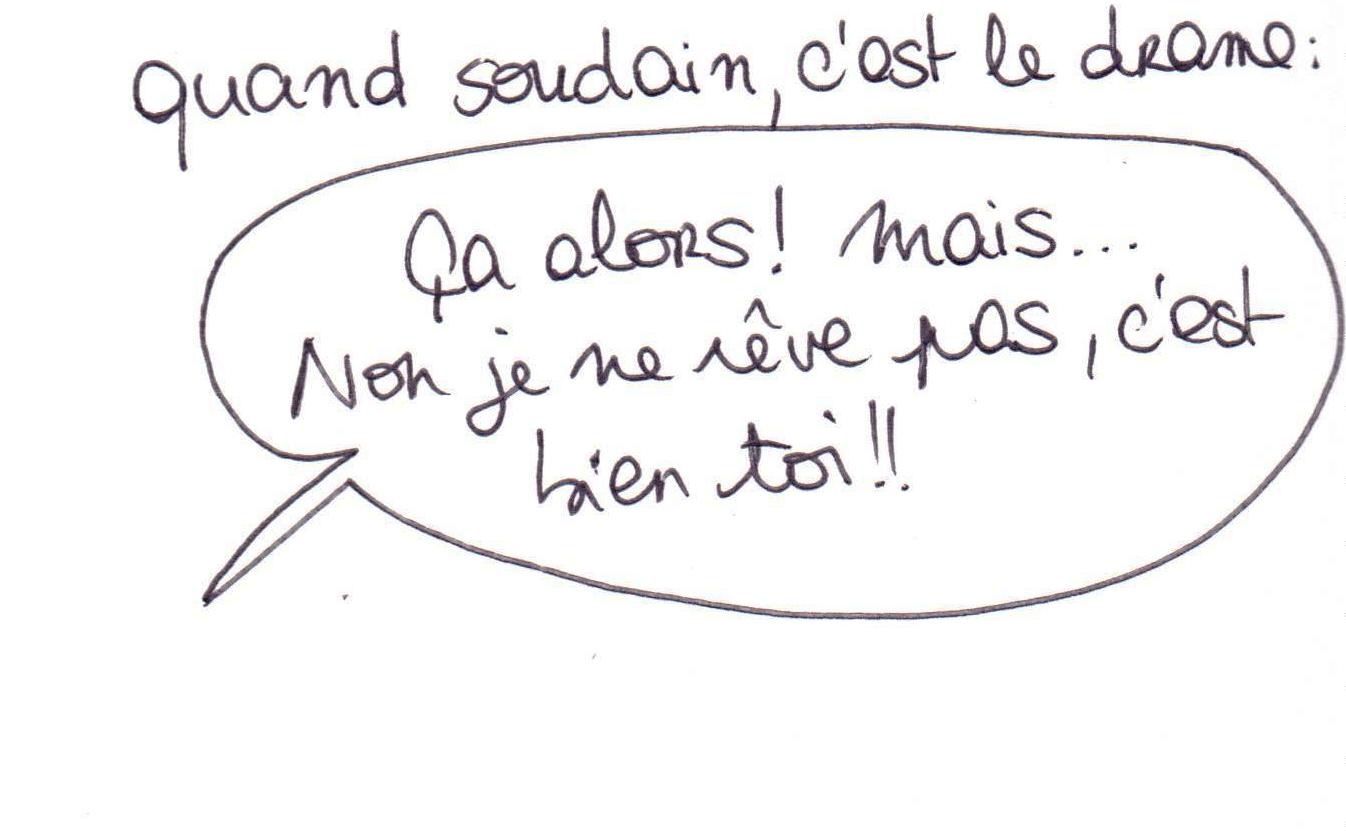 quand soudain, c'est le drame:
Ça alors! mais...
Non je ne rêve pas, c'est
bien toi!!